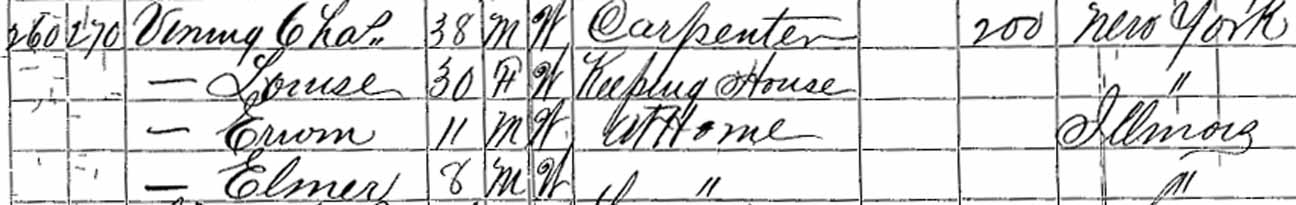 260 270 Vining Chas. 38 M W Carpenter 200 New York
— Louise 30 F W Keeping House "
— Erwin 11 M W At Home Illinois
— Elmer 8 M W " "